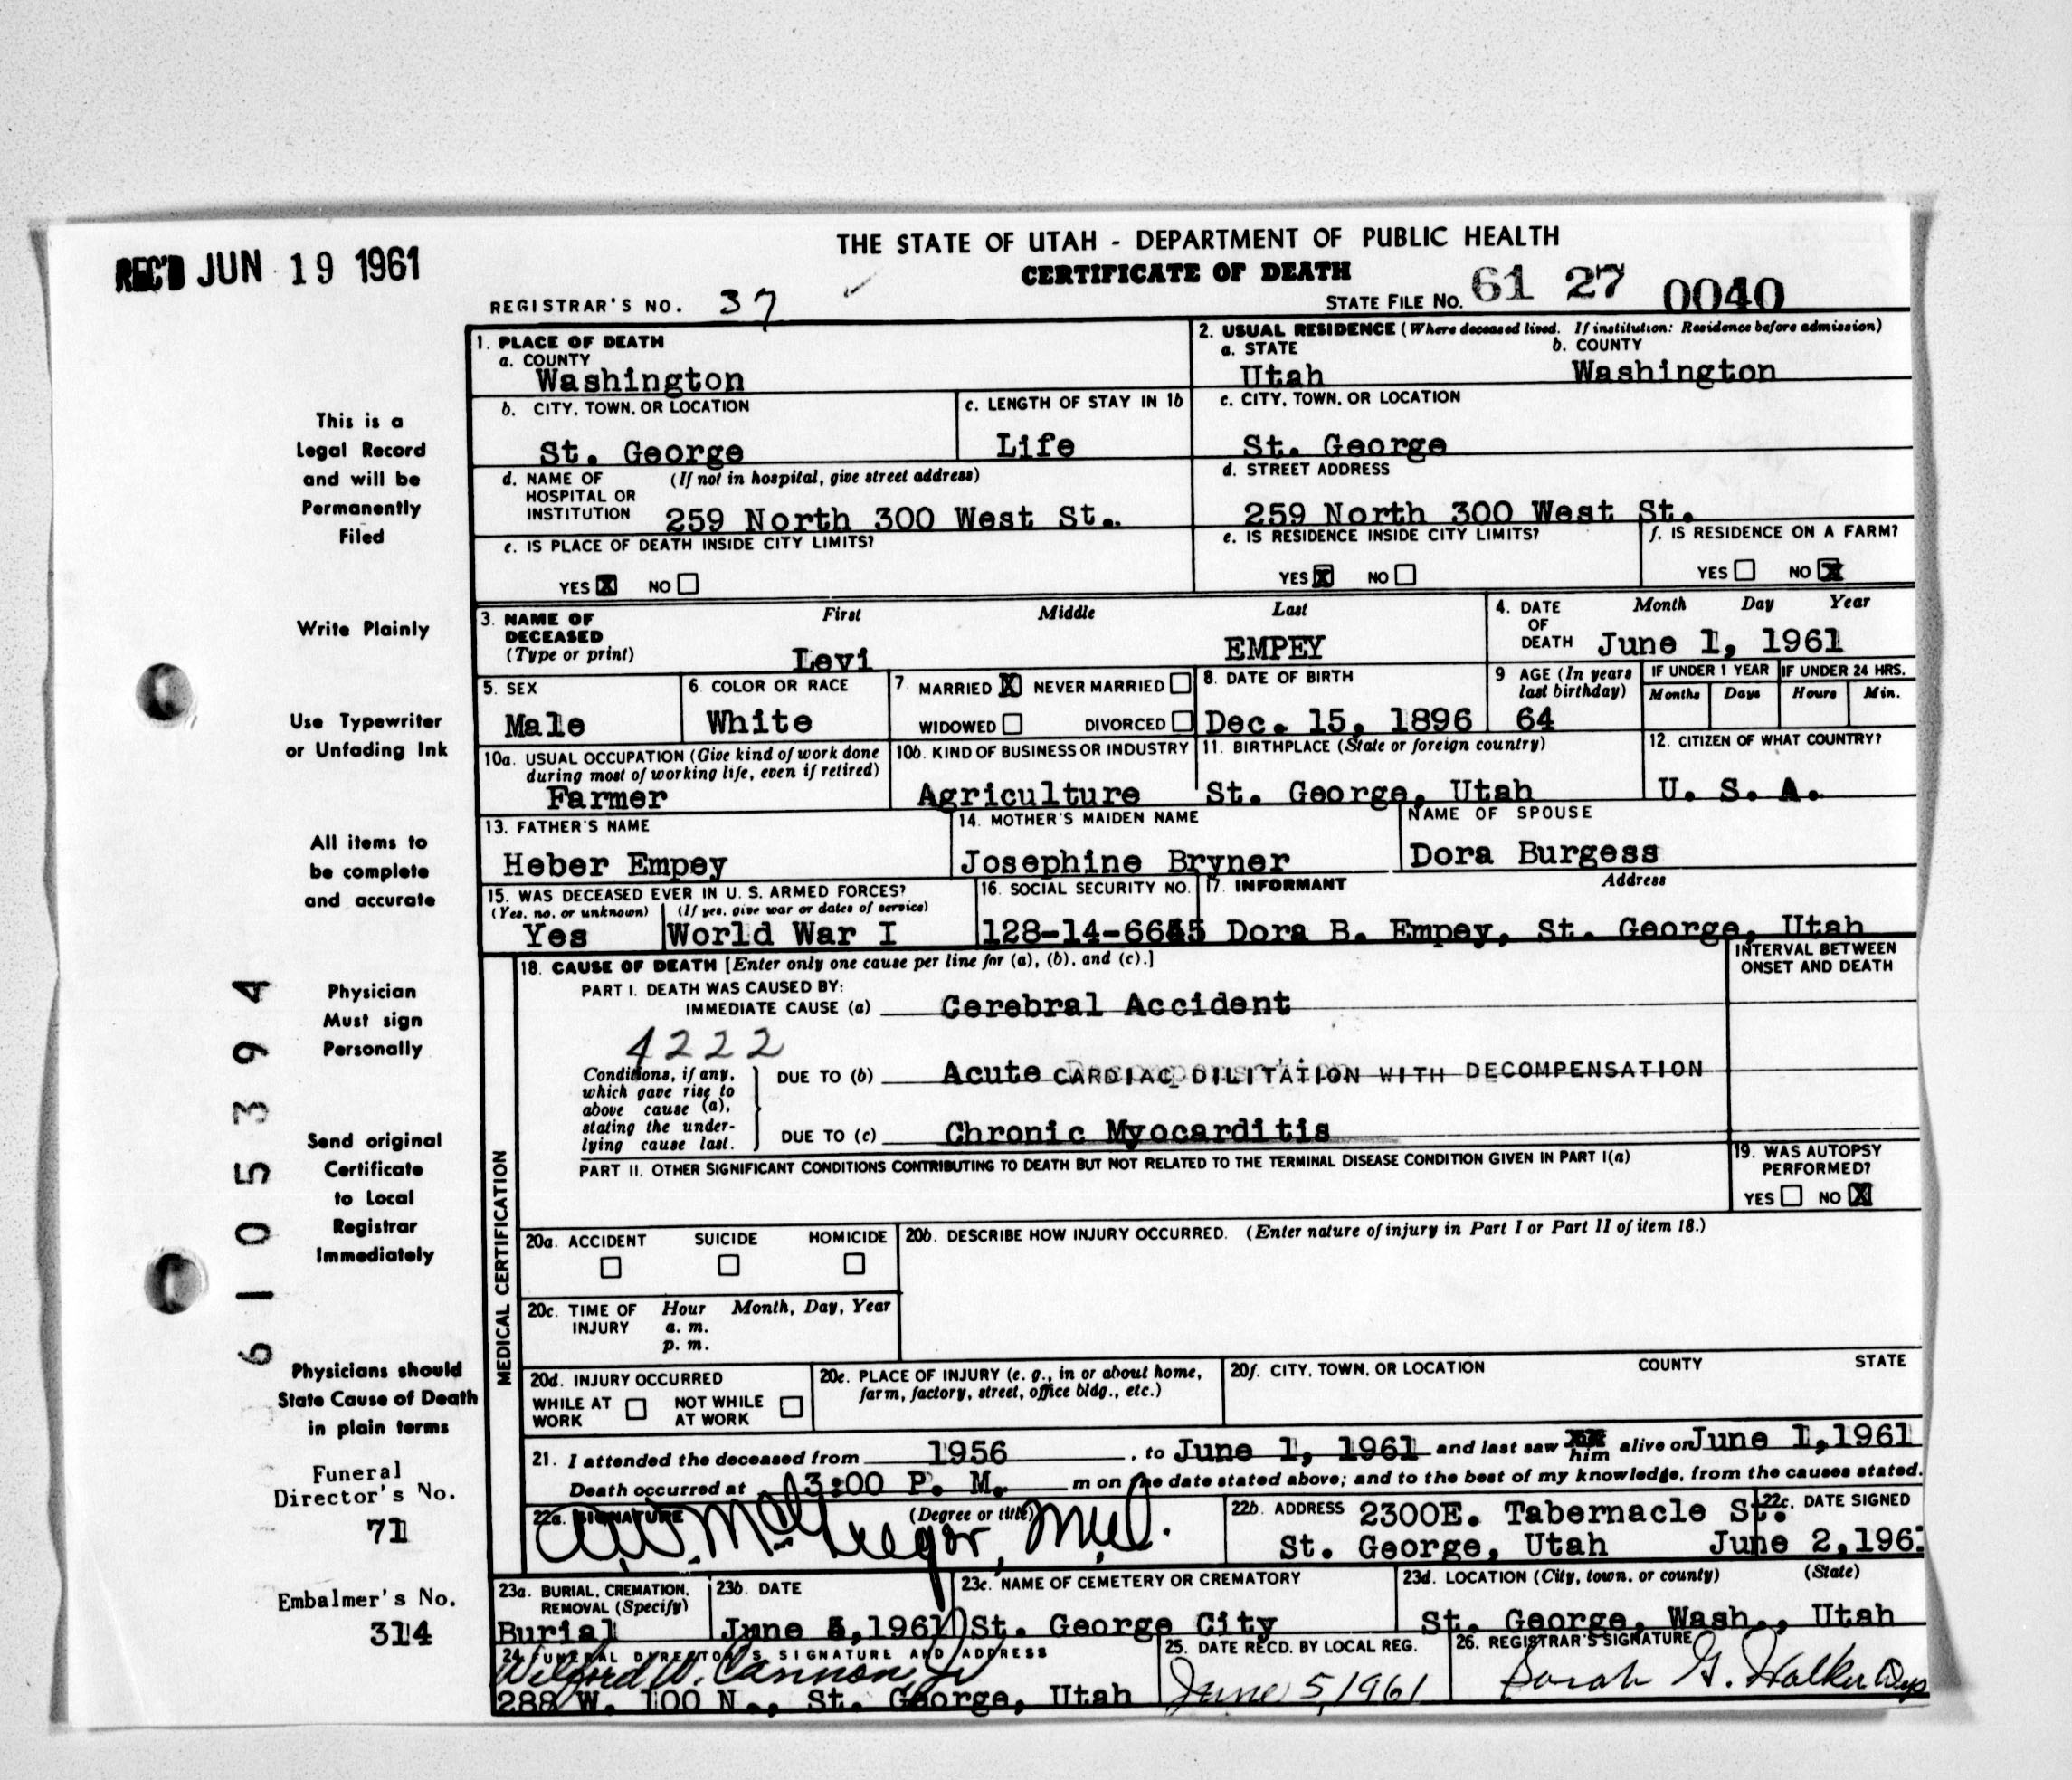 REC'D JUN 19 1961
THE STATE OF UTAH - DEPARTMENT OF PUBLIC HEALTH
CERTIFICATE OF DEATH
REGISTRAR'S NO. 37
STATE FILE NO. 61 27 0040
This is a
Legal Record
and will be
Permanently
Filed
Write Plainly
Use Typewriter
or Unfading Ink
All items to
be complete
and accurate
Physician
Must sign
Personally
Send original
Certificate
to Local
Registrar
Immediately
Physicians should
State Cause of Death
in plain terms
Funeral
Director's No.
71
Embalmer's No.
314
61055394
1. PLACE OF DEATH
a. COUNTY
Washington
2. USUAL RESIDENCE (Where deceased lived. If institution: Residence before admission)
a. STATE b. COUNTY
Utah Washington
b. CITY, TOWN, OR LOCATION
St. George
c. LENGTH OF STAY IN 1b
Life
c. CITY, TOWN, OR LOCATION
St. George
d. NAME OF (If not in hospital, give street address)
HOSPITAL OR
INSTITUTION 259 North 300 West St.
d. STREET ADDRESS
259 North 300 West St.
e. IS PLACE OF DEATH INSIDE CITY LIMITS?
YES X NO
e. IS RESIDENCE INSIDE CITY LIMITS?
YES X NO
f. IS RESIDENCE ON A FARM?
YES NO X
3. NAME OF First Middle Last
DECEASED
(Type or print) Levi EMPEY
4. DATE Month Day Year
OF
DEATH June 1, 1961
5. SEX
Male
6. COLOR OR RACE
White
7. MARRIED X NEVER MARRIED
WIDOWED DIVORCED
8. DATE OF BIRTH
Dec. 15, 1896
9 AGE (In years
last birthday)
64
IF UNDER 1 YEAR IF UNDER 24 HRS.
Months Days Hours Min.
10a. USUAL OCCUPATION (Give kind of work done
during most of working life, even if retired)
Farmer
10b. KIND OF BUSINESS OR INDUSTRY
Agriculture
11. BIRTHPLACE (State or foreign country)
St. George, Utah
12. CITIZEN OF WHAT COUNTRY?
U. S. A.
13. FATHER'S NAME
Heber Empey
14. MOTHER'S MAIDEN NAME
Josephine Bryner
NAME OF SPOUSE
Dora Burgess
15. WAS DECEASED EVER IN U. S. ARMED FORCES?
(Yes, no, or unknown) (If yes, give war or dates of service)
Yes World War I
16. SOCIAL SECURITY NO.
17. INFORMANT Address
Dora B. Empey, St. George, Utah
MEDICAL CERTIFICATION
18. CAUSE OF DEATH [Enter only one cause per line for (a), (b), and (c).]
INTERVAL BETWEEN
ONSET AND DEATH
PART I. DEATH WAS CAUSED BY:
IMMEDIATE CAUSE (a) Cerebral Accident
4222
Conditions, if any,
which gave rise to
above cause (a),
stating the under-
lying cause last.
DUE TO (b) Acute CARDIAC DILITATION WITH DECOMPENSATION
DUE TO (c) Chronic Myocarditis
PART II. OTHER SIGNIFICANT CONDITIONS CONTRIBUTING TO DEATH BUT NOT RELATED TO THE TERMINAL DISEASE CONDITION GIVEN IN PART I(a)
19. WAS AUTOPSY
PERFORMED?
YES NO X
20a. ACCIDENT SUICIDE HOMICIDE
20b. DESCRIBE HOW INJURY OCCURRED. (Enter nature of injury in Part I or Part II of item 18.)
20c. TIME OF Hour Month, Day, Year
INJURY a. m.
p. m.
20d. INJURY OCCURRED
WHILE AT NOT WHILE
WORK AT WORK
20e. PLACE OF INJURY (e. g., in or about home,
farm, factory, street, office bldg., etc.)
20f. CITY, TOWN, OR LOCATION COUNTY STATE
21. I attended the deceased from 1956, to June 1, 1961 and last saw him alive on June 1,1961
Death occurred at 3:00 P. M. m on the date stated above; and to the best of my knowledge, from the causes stated.
22a. SIGNATURE (Degree or title)
A.W. McGregor, M.D.
22b. ADDRESS 2300E. Tabernacle St.
St. George, Utah
22c. DATE SIGNED
June 2,196
23a. BURIAL, CREMATION,
REMOVAL (Specify)
Burial
23b. DATE
June 5,1961
23c. NAME OF CEMETERY OR CREMATORY
St. George City
23d. LOCATION (City, town, or county) (State)
St. George, Wash., Utah
24. FUNERAL DIRECTOR'S SIGNATURE AND ADDRESS
Wilford W. Cannon Jr
288 W. 100 N., St. George, Utah
25. DATE RECD. BY LOCAL REG.
June 5, 1961
26. REGISTRAR'S SIGNATURE
Sarah G. Walker Dep